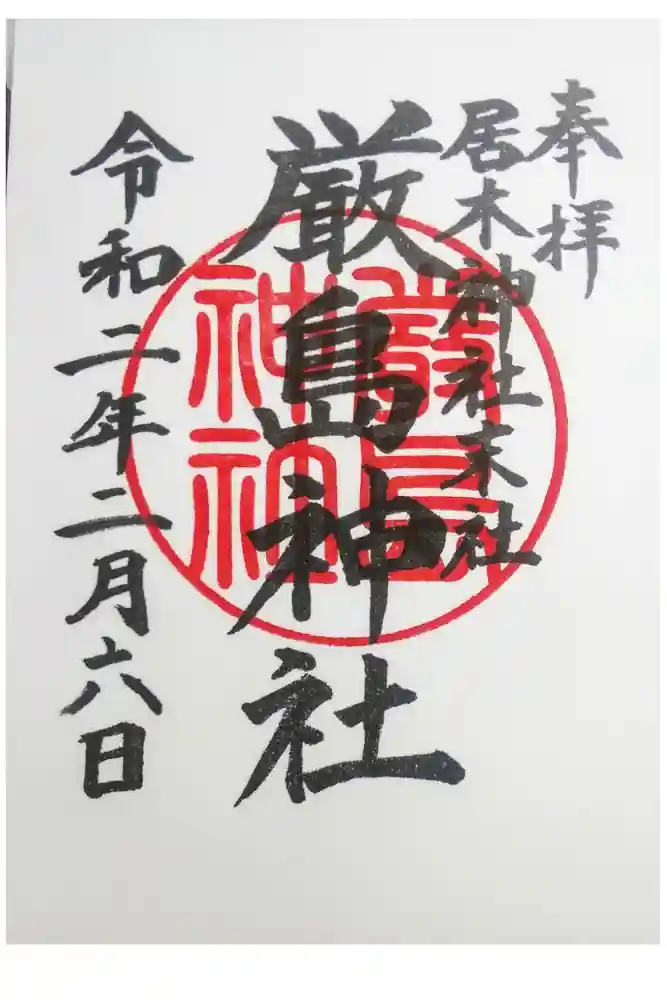 奉拝
居木神社末社
厳島神社
嚴島
神社
令和二年二月六日